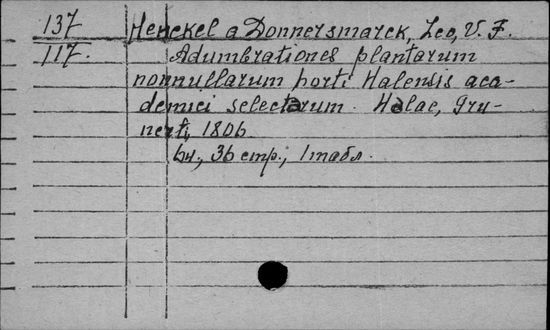 137 Henckel a Donnersmarck, Leo, V. F.
117. Adumbrationes plantarum
nonnullarum horti Halensis aca-
demici selectarum. Halae, Gru-
nerti, 1806.
36 стр., 1 табл.